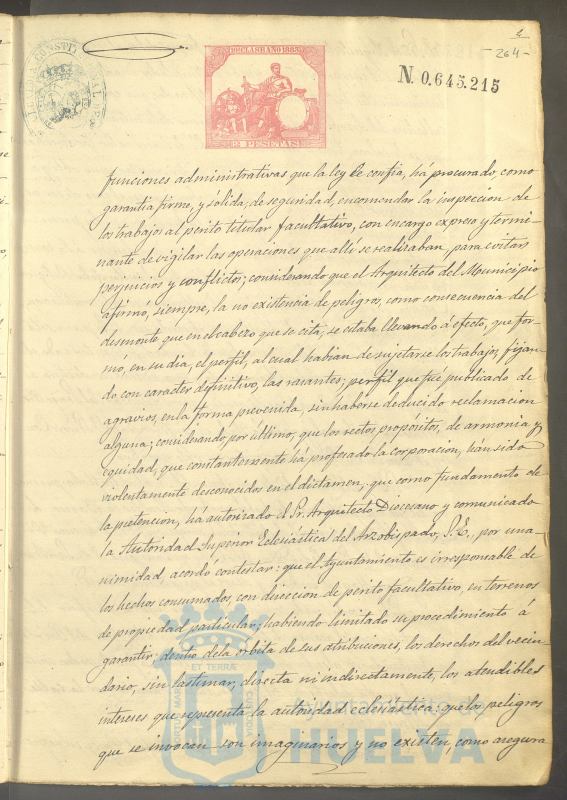 2
-264-
10ª CLASE AÑO 1885
2 PESETAS
N. 0.645.215
funciones administrativas que la ley le confia, há procurado, como
garantia firme, y sólida, de seguridad, encomendar la inspeccion de
los trabajos al perito titular facultativo, con encargo expreso y termi-
nante de vigilar las operaciones que allí se realizaban, para evitar
perjuicios y conflictos; considerando que el Arquitecto del Mounicipio
afirmó, siempre, la no existencia de peligros, como consecuencia del
desmonte que en el cabezo que se cita, se estaba llevando á efecto, que for-
mo, en su dia, el perfil, al cual habian de sujetarse los trabajos, fijan-
do con caracter definitivo, las rasantes; perfil que fué publicado de
agravios, en la forma prevenida, sin haberse deducido reclamacion
alguna; considerando, por último, que los rectos propósitos, de armonia y
equidad, que constantemente há profesado la corporacion, hán sido
violentamente desconocidos en el dictámen, que como fundamento de
la pretencion, há autorizado el Sr. Arquitecto Diocesano y comunicado
la Autoridad Superior Eclesiástica del Arzobispado, S. E., por una-
nimidad, acordó contestar: que el Ayuntamiento es irresponsable de
los hechos consumados, con direccion de perito facultativo, en terrenos
de propiedad particular; habiendo limitado su procedimiento á
garantir, dentro de la orbita de sus atribuciones, los derechos del vecin-
dario, sin lastimar, directa ni indirectamente, los atendibles
intereses que representa la autoridad eclesiástica: que los peligros
que se invocan son imaginarios y no existen, como asegura
ET TERRÆ
Ayuntamiento de
HUELVA